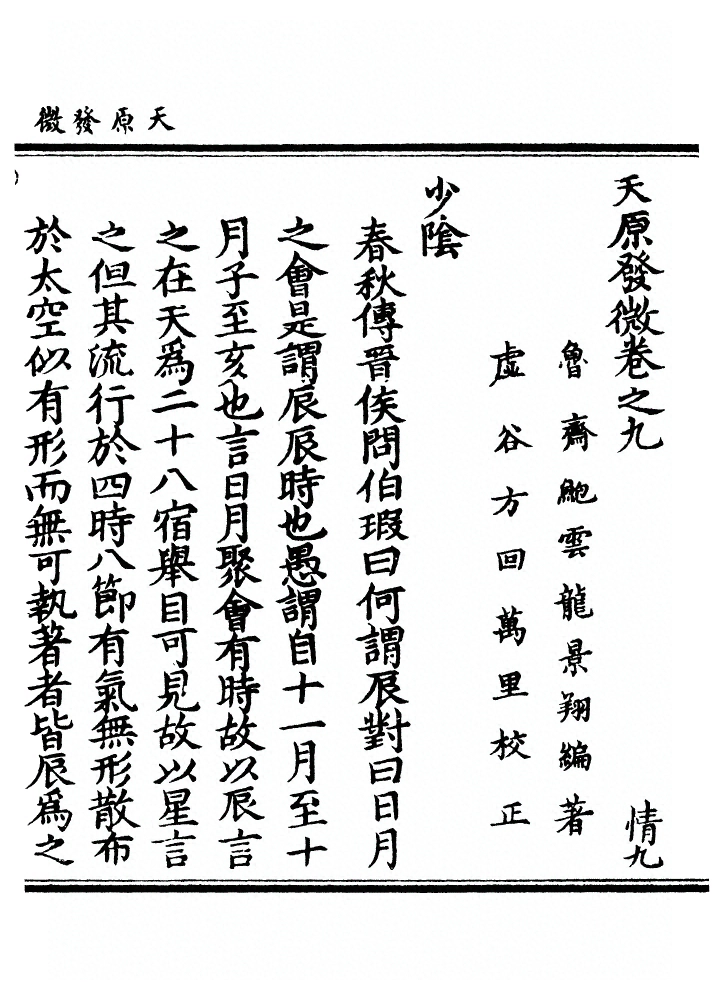 天原發微
天原發微卷之九 情九
魯齋鮑雲龍景翔編著
虛谷方回萬里校正
少陰
春秋傳晉侯問伯瑕曰何謂辰對曰日月
之會是謂辰辰時也愚謂自十一月至十
月子至亥也言日月聚會有時故以辰言
之在天爲二十八宿舉目可見故以星言
之但其流行於四時八節有氣無形散布
於太空似有形而無可執著者皆辰爲之